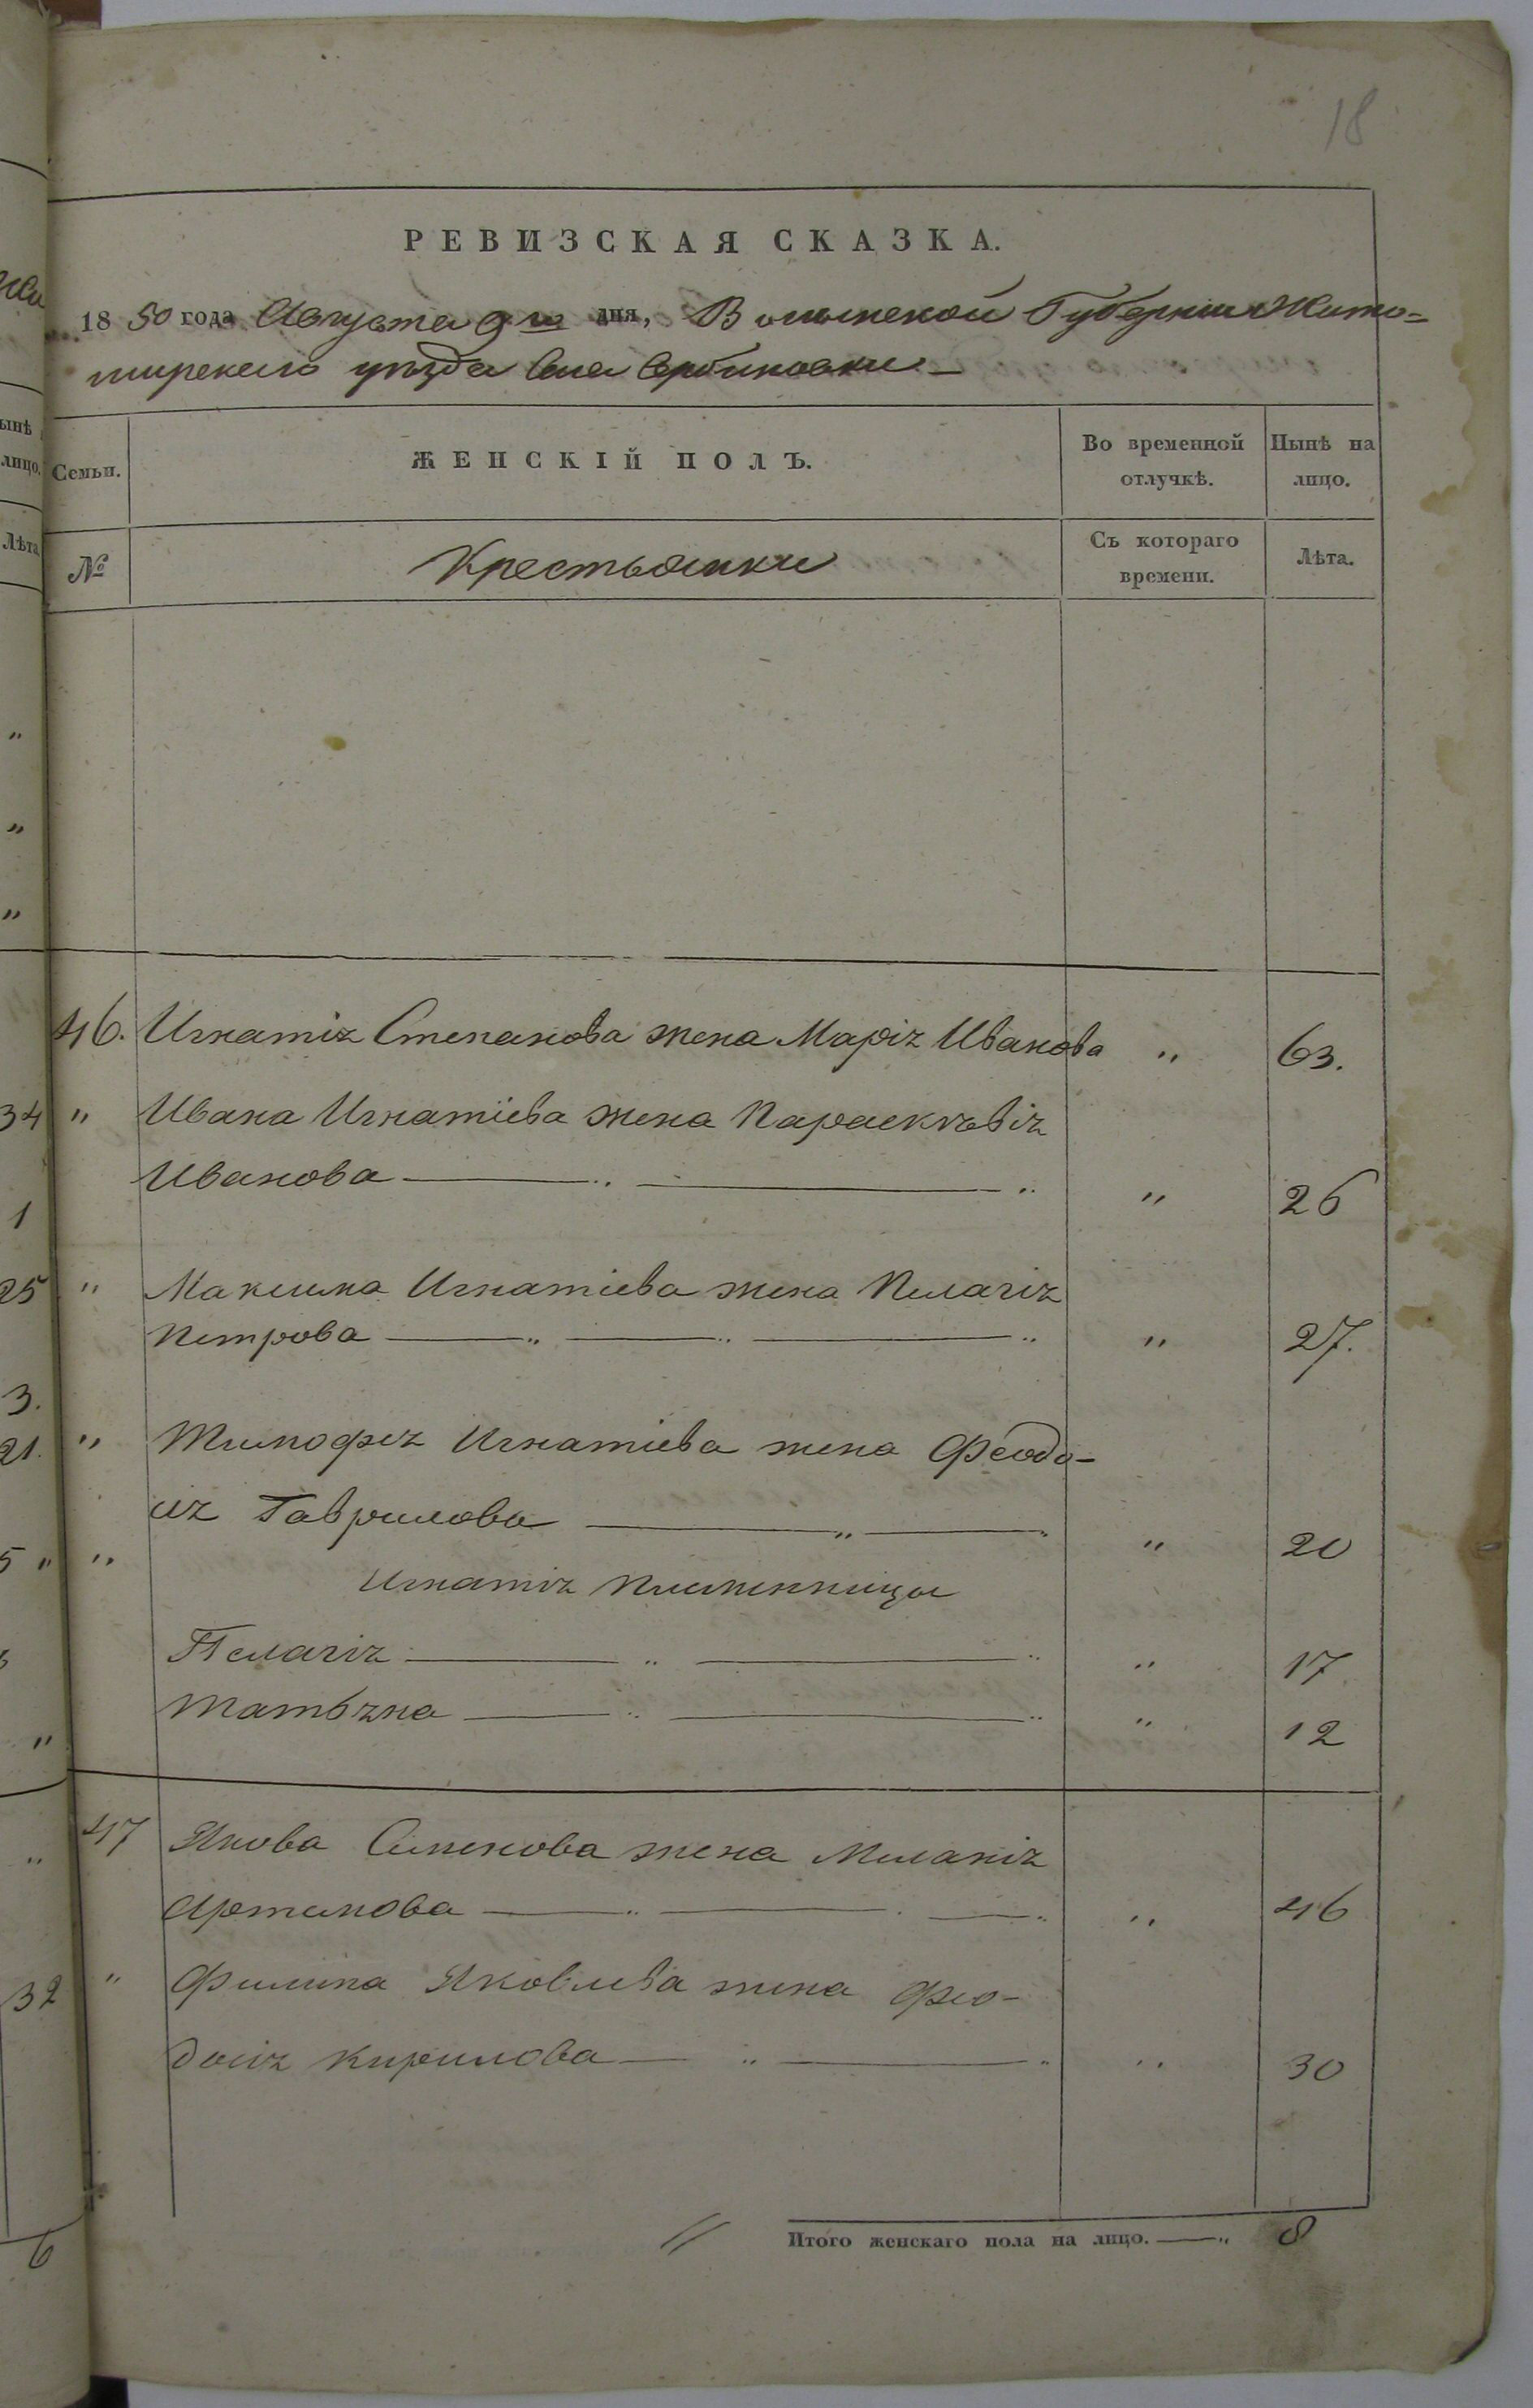 18
РЕВИЗСКАЯ СКАЗКА.
1850 года Августа 9го дня, Волынской Губернии Жито=
мирскаго уѣзда Села
Семьи. ЖЕНСКІЙ ПОЛЪ. Во временной отлучкѣ. Нынѣ на лицо.
№ Крестьянки Съ котораго времени. Лѣта.
46. Игнатія Степанова жена Марія Иванова " 63.
" Ивана Игнатіева жена Параскѣвія
Иванова " 26
" Максима Игнатіева жена Пелагія
Петрова " 27.
" Тимофея Игнатіева жена Феодо-
ія Гаврилова " 20
" Игнатія племенницы
Пелагія " 17
Татьяна " 12
47 Якова Семенова жена Меланія
" 46
" Филипа Яковлева жена Фео-
досія Кирилова " 30
Итого женскаго пола на лицо. — " 8
ынѣ
лицо.
Лѣта
"
"
"
34
1
25
3.
21.
5 "
"
"
32
6